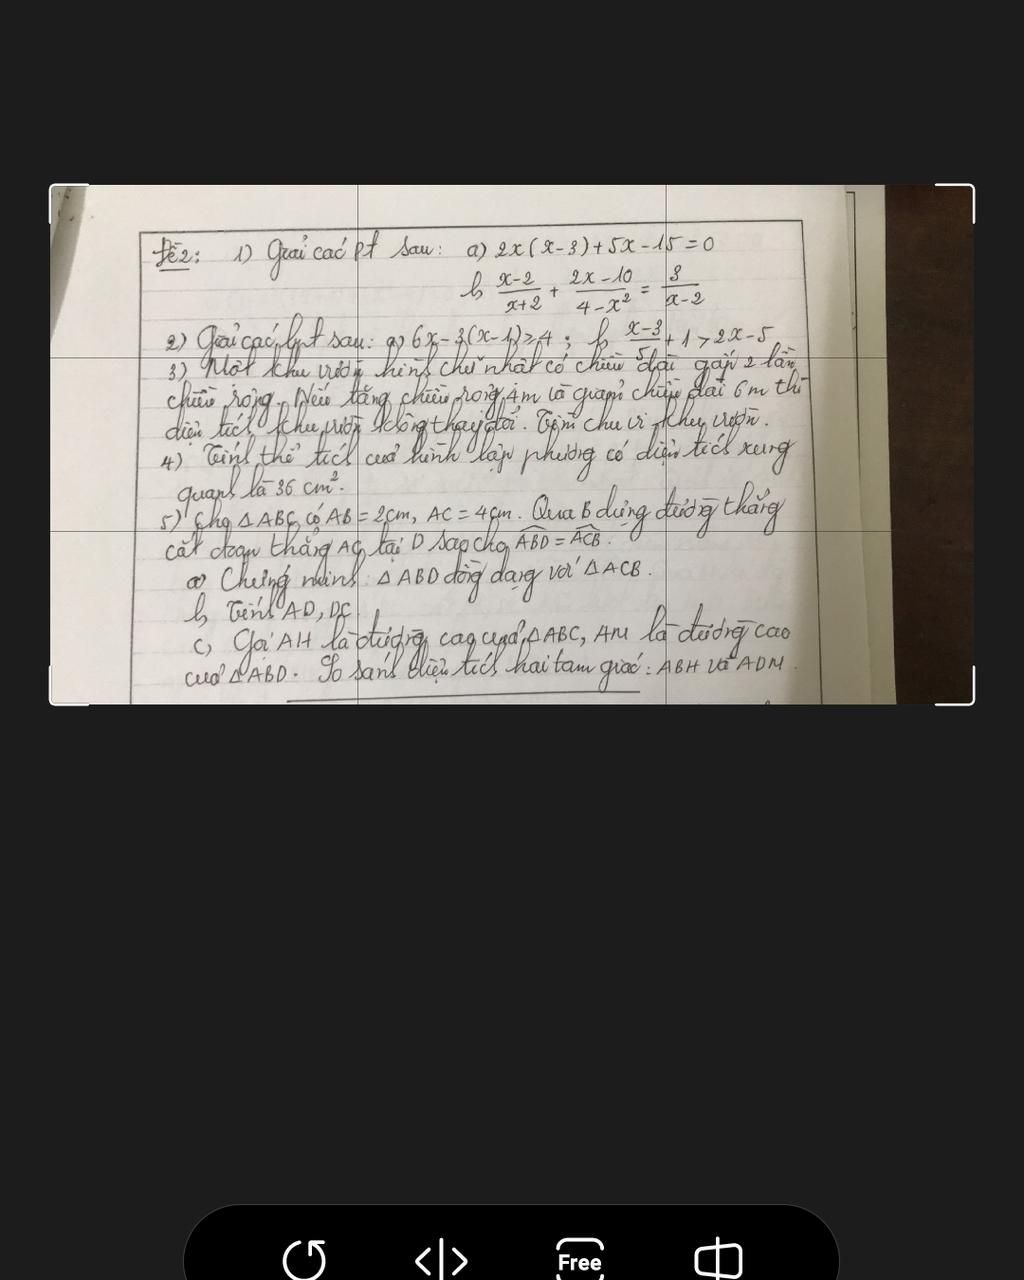 Đề 2: 1) Giải các pt sau: a) 2x(x-3)+5x-15=0
b) x-2/x+2 + 2x-10/4-x² = 3/x-2
2) Giải các bpt sau: a) 6x-3(x-1)>4; b) x-3/5+1>2x-5
3) Một khu vườn hình chữ nhật có chiều dài gấp 2 lần
chiều rộng. Nếu tăng chiều rộng 4m và giảm chiều dài 6m thì
diện tích khu vườn không thay đổi. Tìm chu vi khu vườn.
4) Tính thể tích của hình lập phương có diện tích xung
quanh là 36 cm².
5) Cho △ABC có AB = 2cm, AC = 4cm. Qua B dựng đường thẳng
cắt đoạn thẳng AC tại D sao cho ABD = ACB.
a) Chứng minh: △ABD đồng dạng với △ACB.
b) Tính AD, DC.
c) Gọi AH là đường cao của △ABC, AM là đường cao
của △ABD. So sánh diện tích hai tam giác: ABH và ADM.
Free